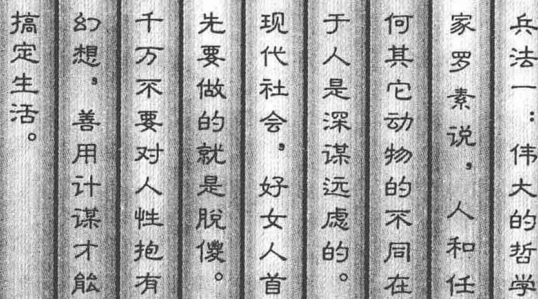 兵法一：伟大的哲学
家罗素说，人和任
何其它动物的不同在
于人是深谋远虑的。
现代社会，好女人首
先要做的就是脱傻。
千万不要对人性抱有
幻想，善用计谋才能
搞定生活。